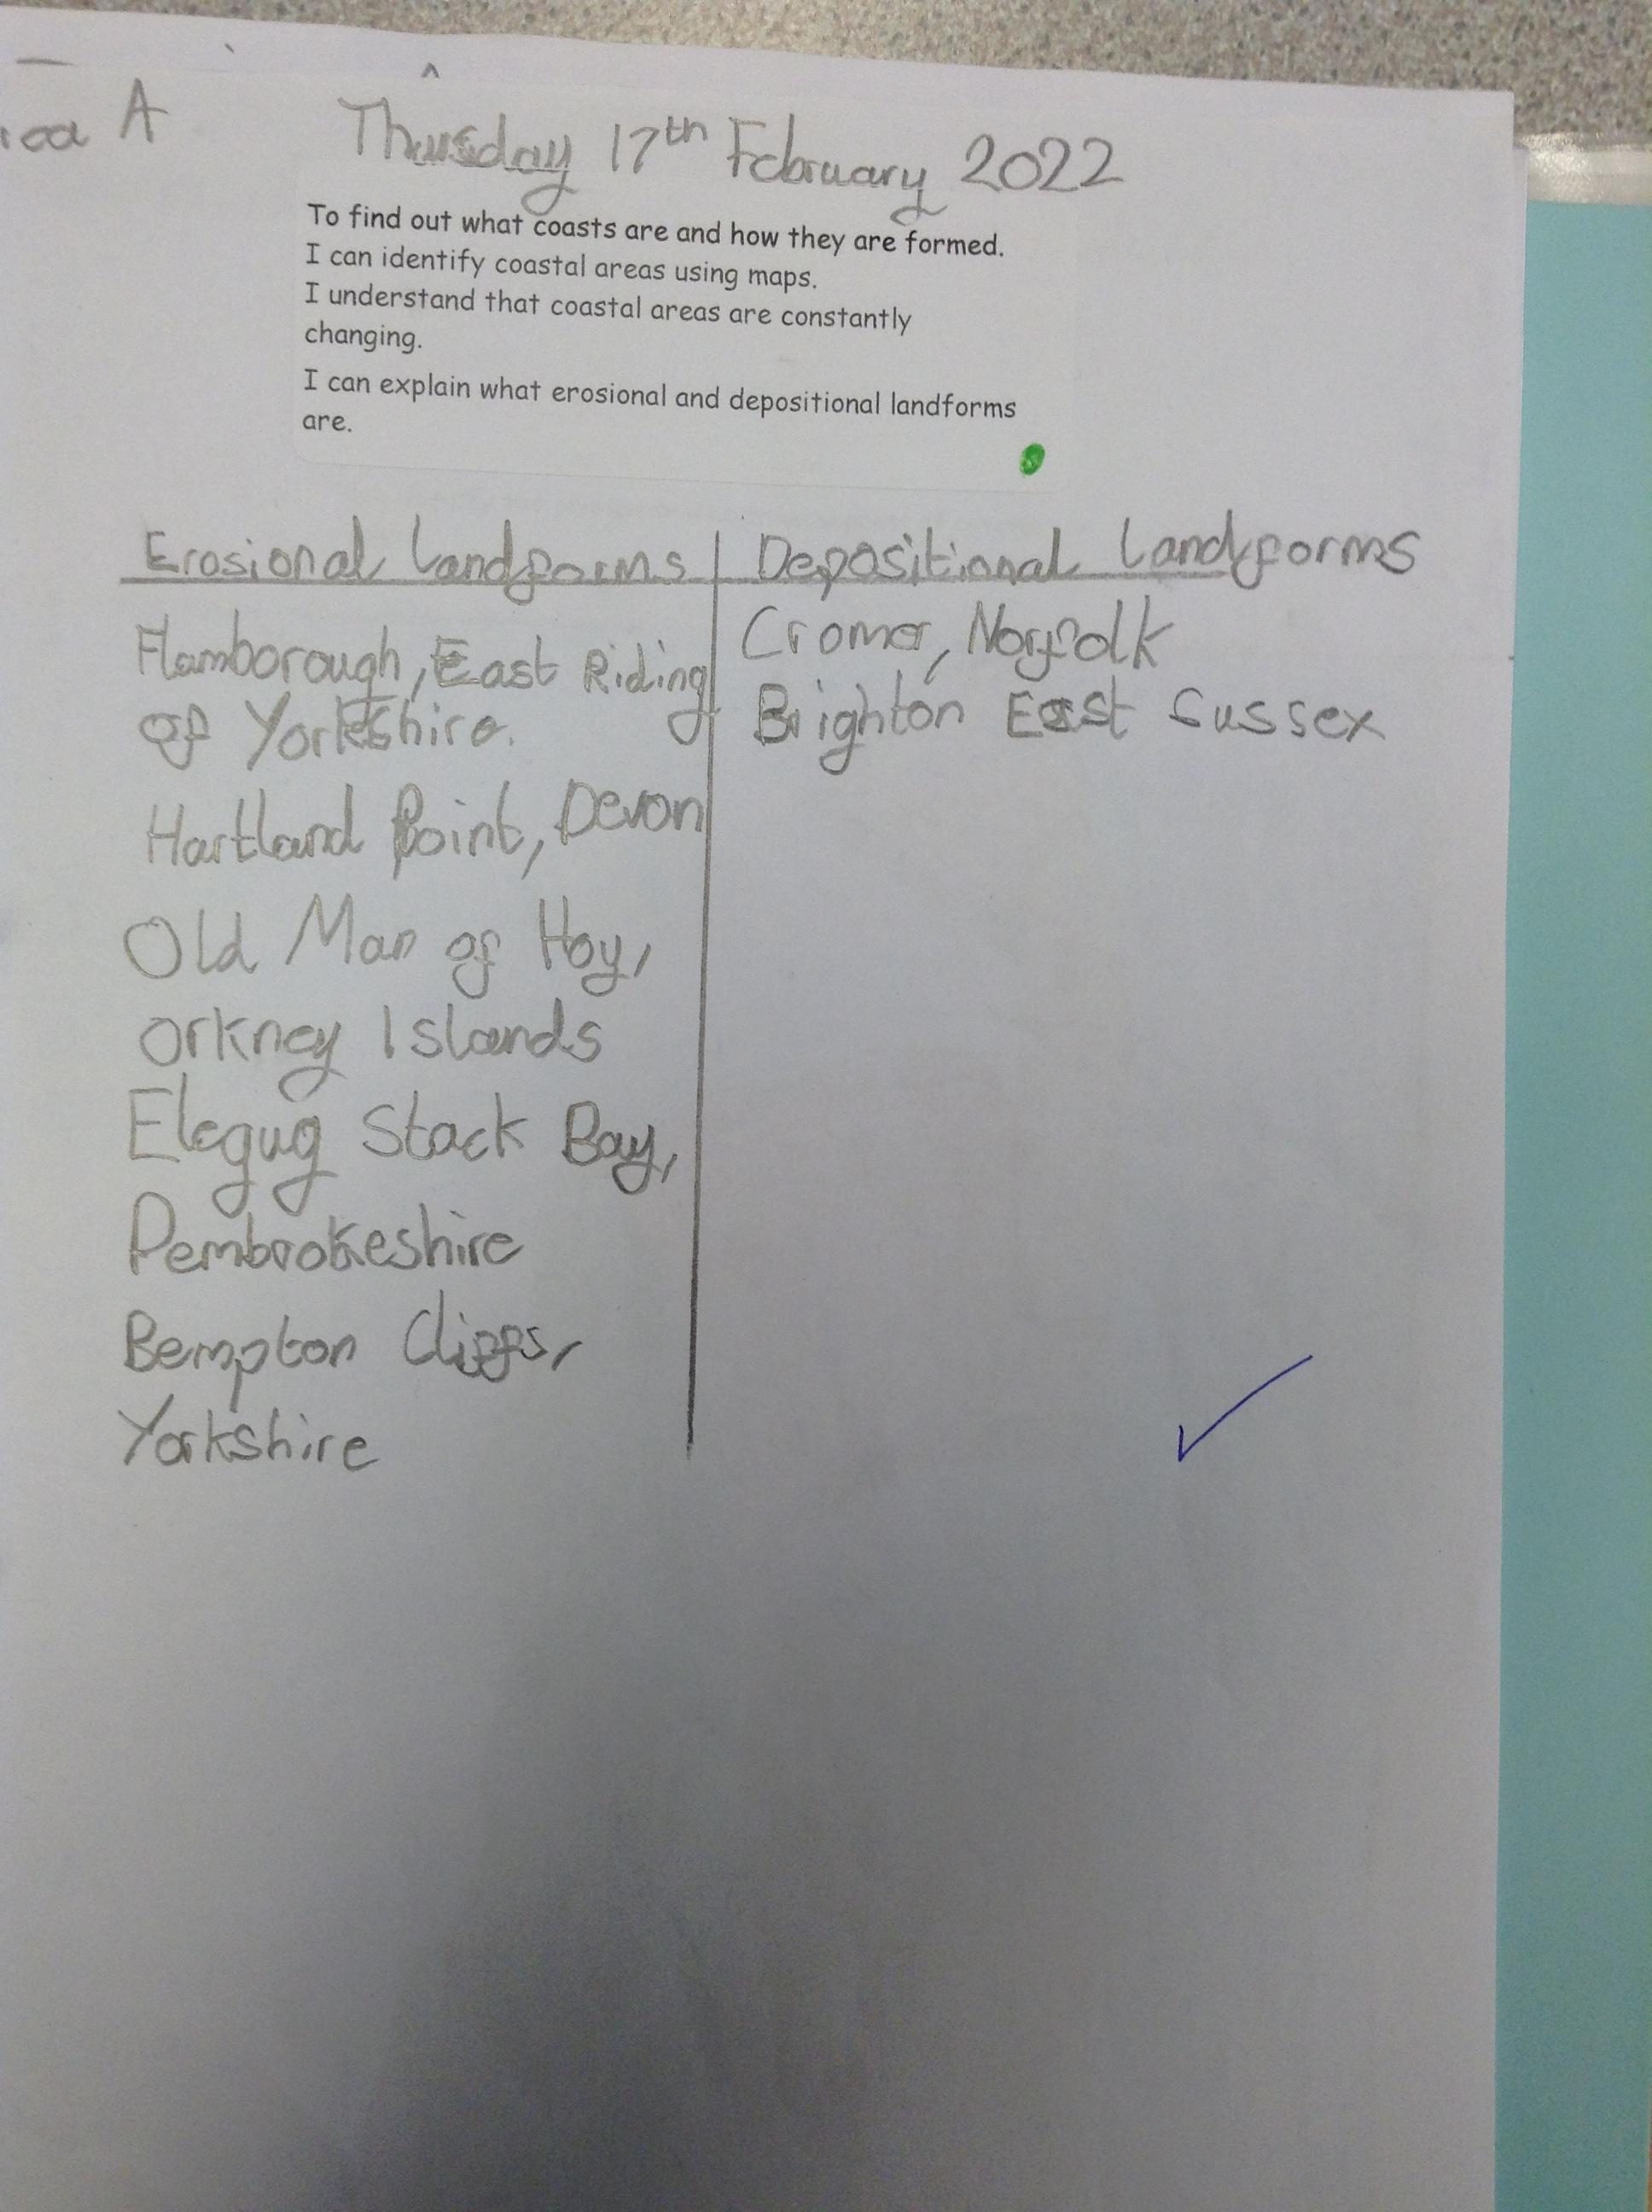 A
Thursday 17th February 2022
To find out what coasts are and how they are formed.
I can identify coastal areas using maps.
I understand that coastal areas are constantly
changing.
I can explain what erosional and depositional landforms
are.
Erosional landforms
Flamborough, East Riding
of Yorkshire.
Hartland Point, Devon
Old Man of Hoy,
Orkney Islands
Elegug Stack Bay,
Pembrokeshire
Bempton Cliffs,
Yorkshire
Depositional landforms
Cromer, Norfolk
Brighton East Sussex